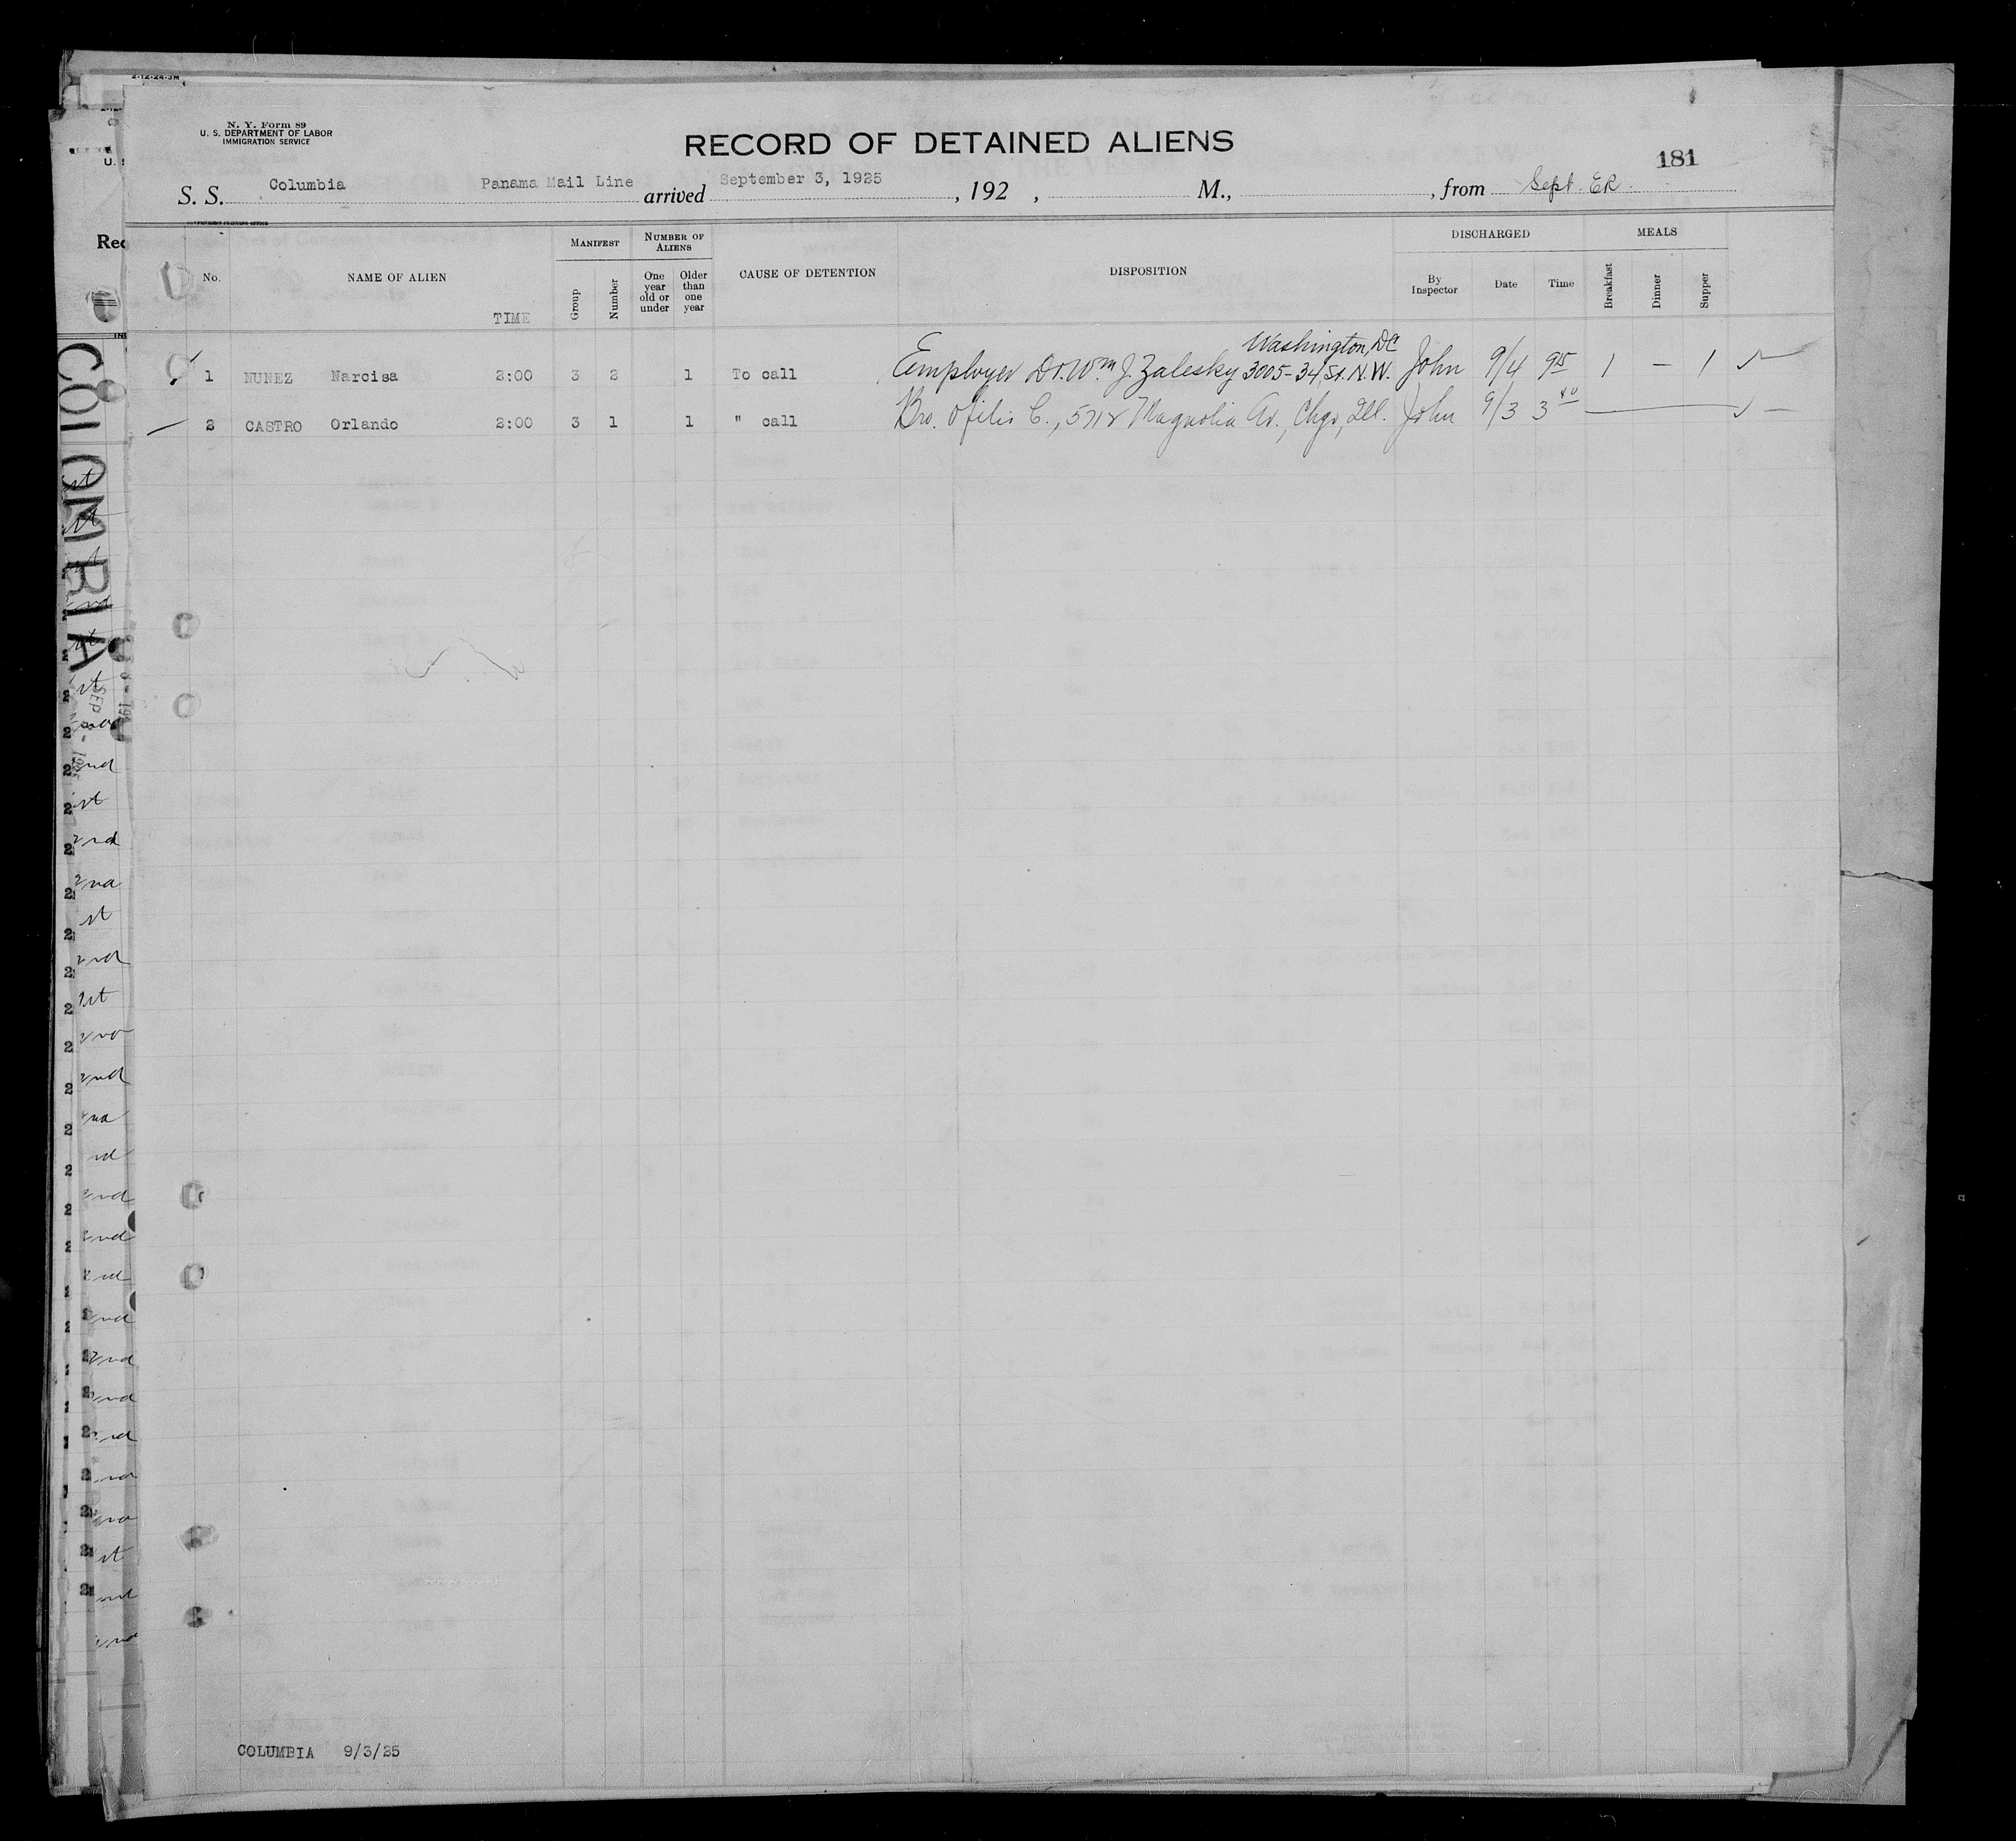 2-12-24-3M
N. Y. Form 89
U. S. DEPARTMENT OF LABOR
IMMIGRATION SERVICE
RECORD OF DETAINED ALIENS
181
S. S. Columbia Panama Mail Line arrived September 3, 1925, 192 , M., , from Sept. ER
No. NAME OF ALIEN TIME MANIFEST Group Number NUMBER OF ALIENS One year old or under Older than one year CAUSE OF DETENTION DISPOSITION DISCHARGED By Inspector Date Time MEALS Breakfast Dinner Supper
Washington, DC
1 NUNEZ Narcisa 2:00 3 2 1 To call Employer Dr. Wm J. Zalesky 3005-34 St. N.W. John 9/4 915 1 — 1 ✓
2 CASTRO Orlando 2:00 3 1 1 " call Bro. Ofilio C., 5712 Magnolia Av., Chgo, Ill. John 9/3 3 40 ✓
COLUMBIA 9/3/25
Rec
COLOMBIA